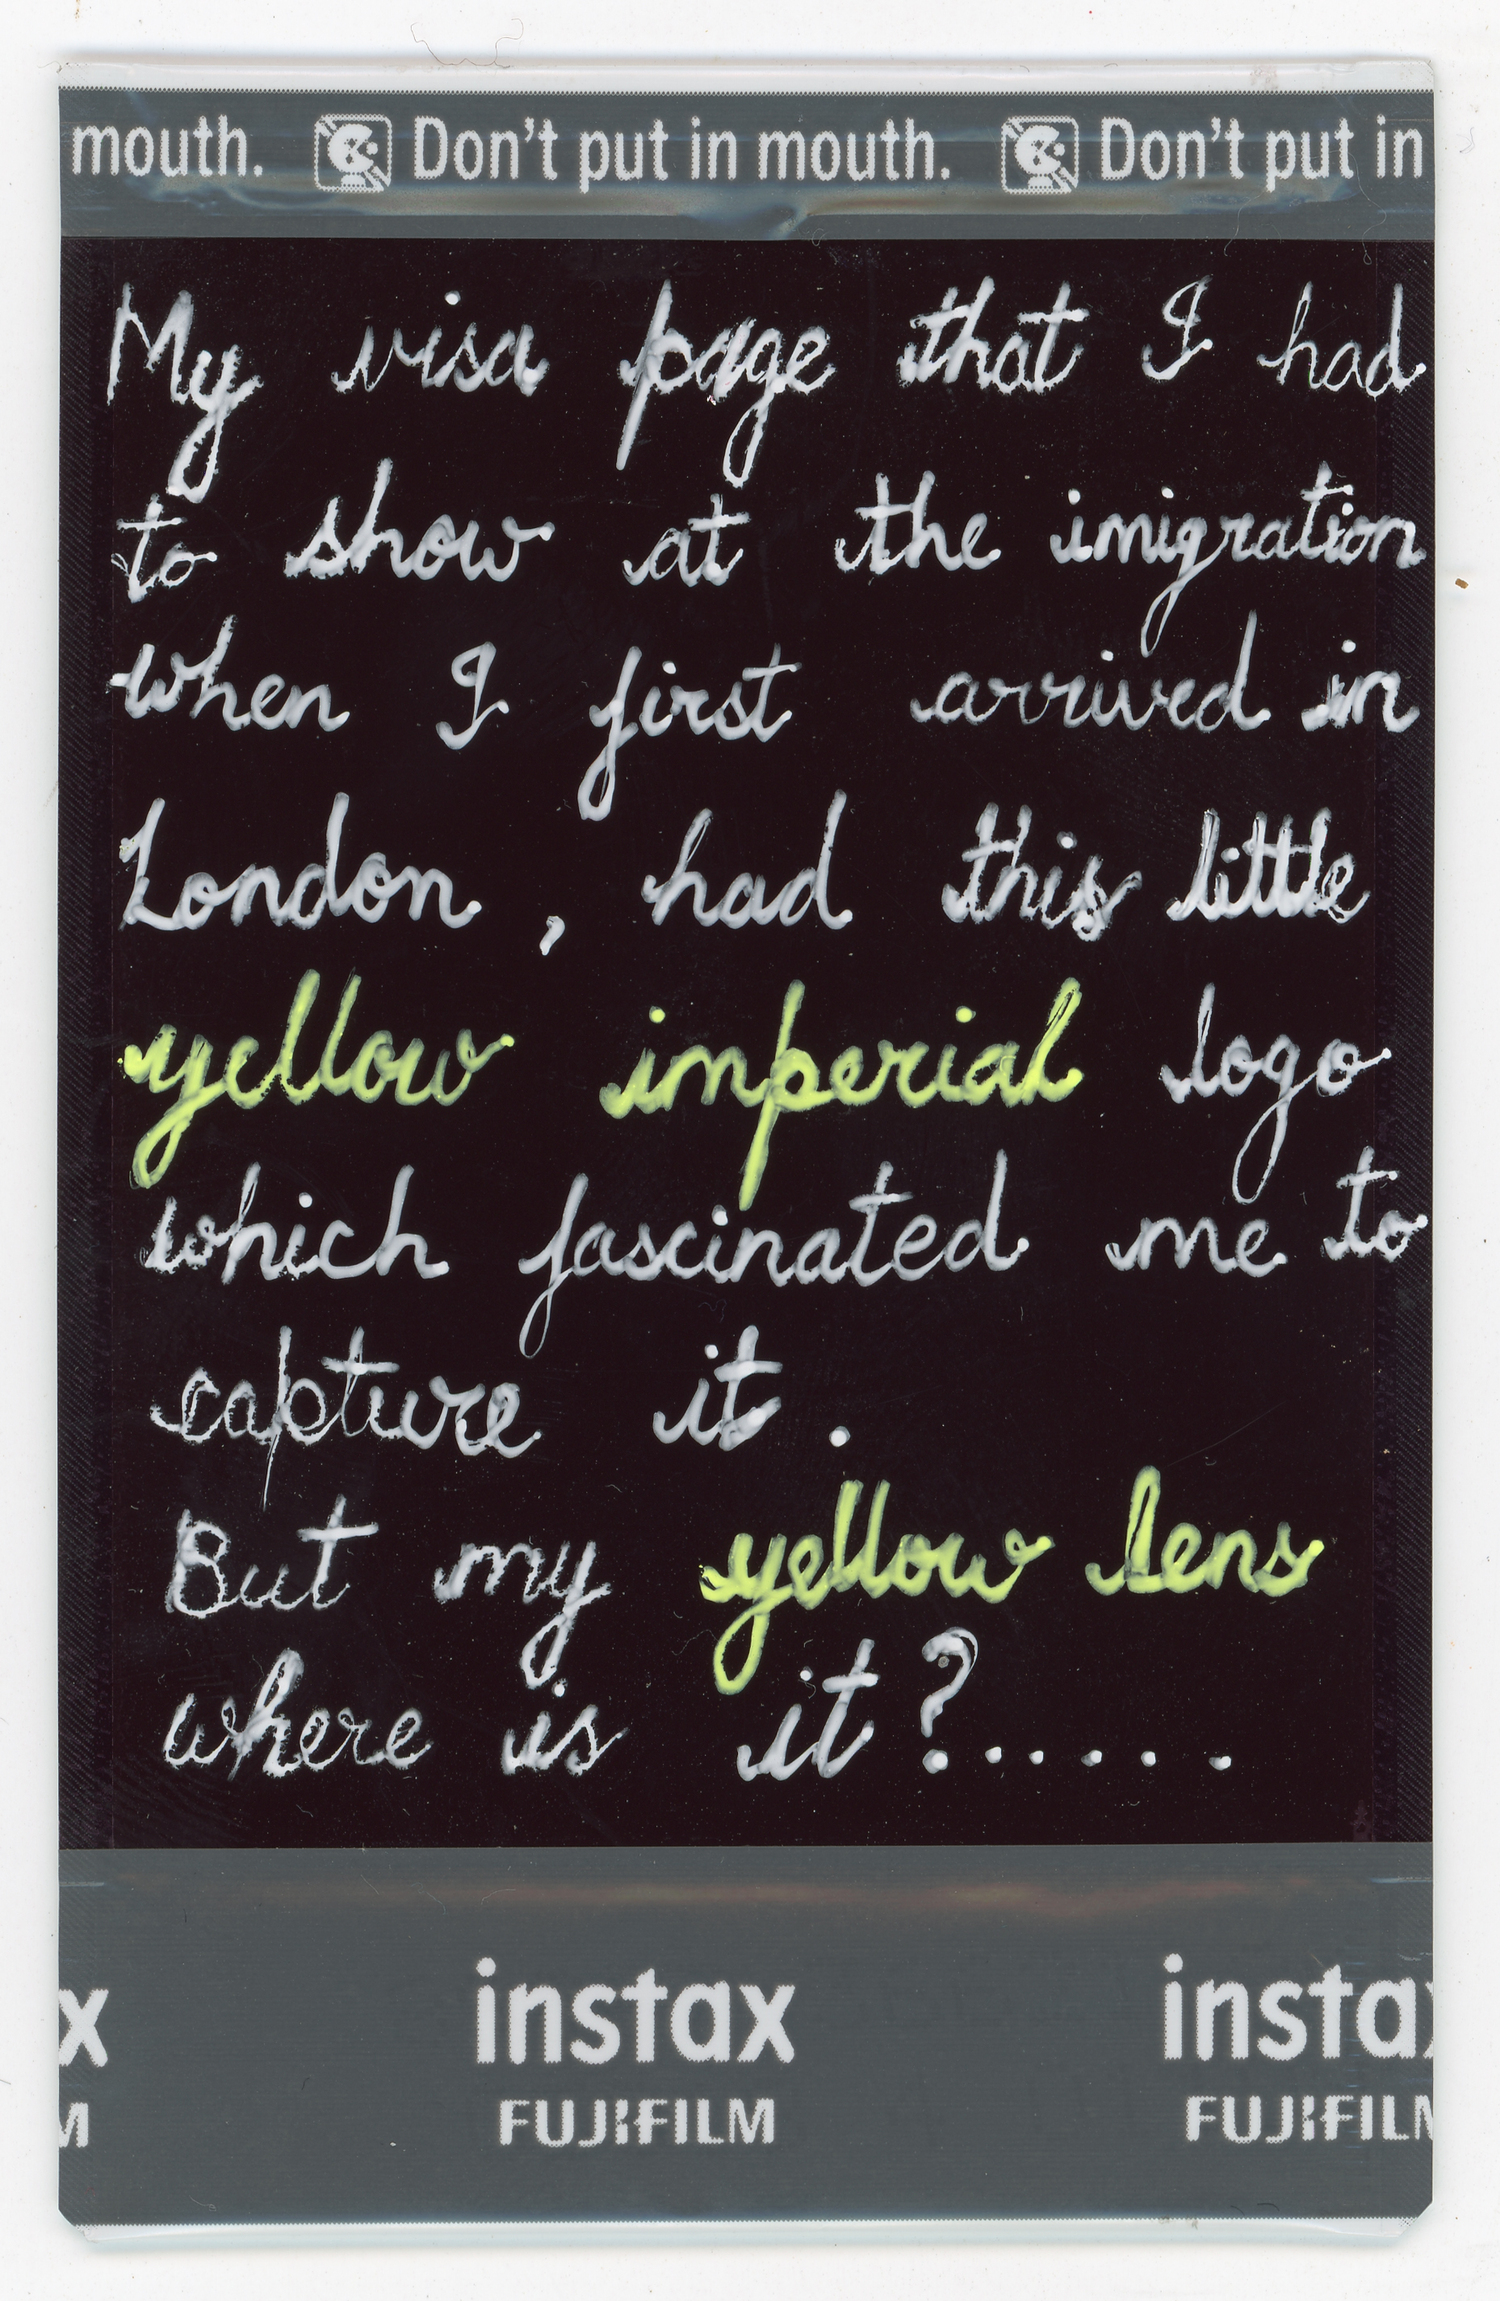 mouth. Don't put in mouth. Don't put in
My visa page that I had
to show at the imigration
when I first arrived in
London, had this little
yellow imperial logo
which fascinated me to
capture it.
But my yellow lens
where is it?.....
x instax insta
M FUJIFILM FUJIFILM